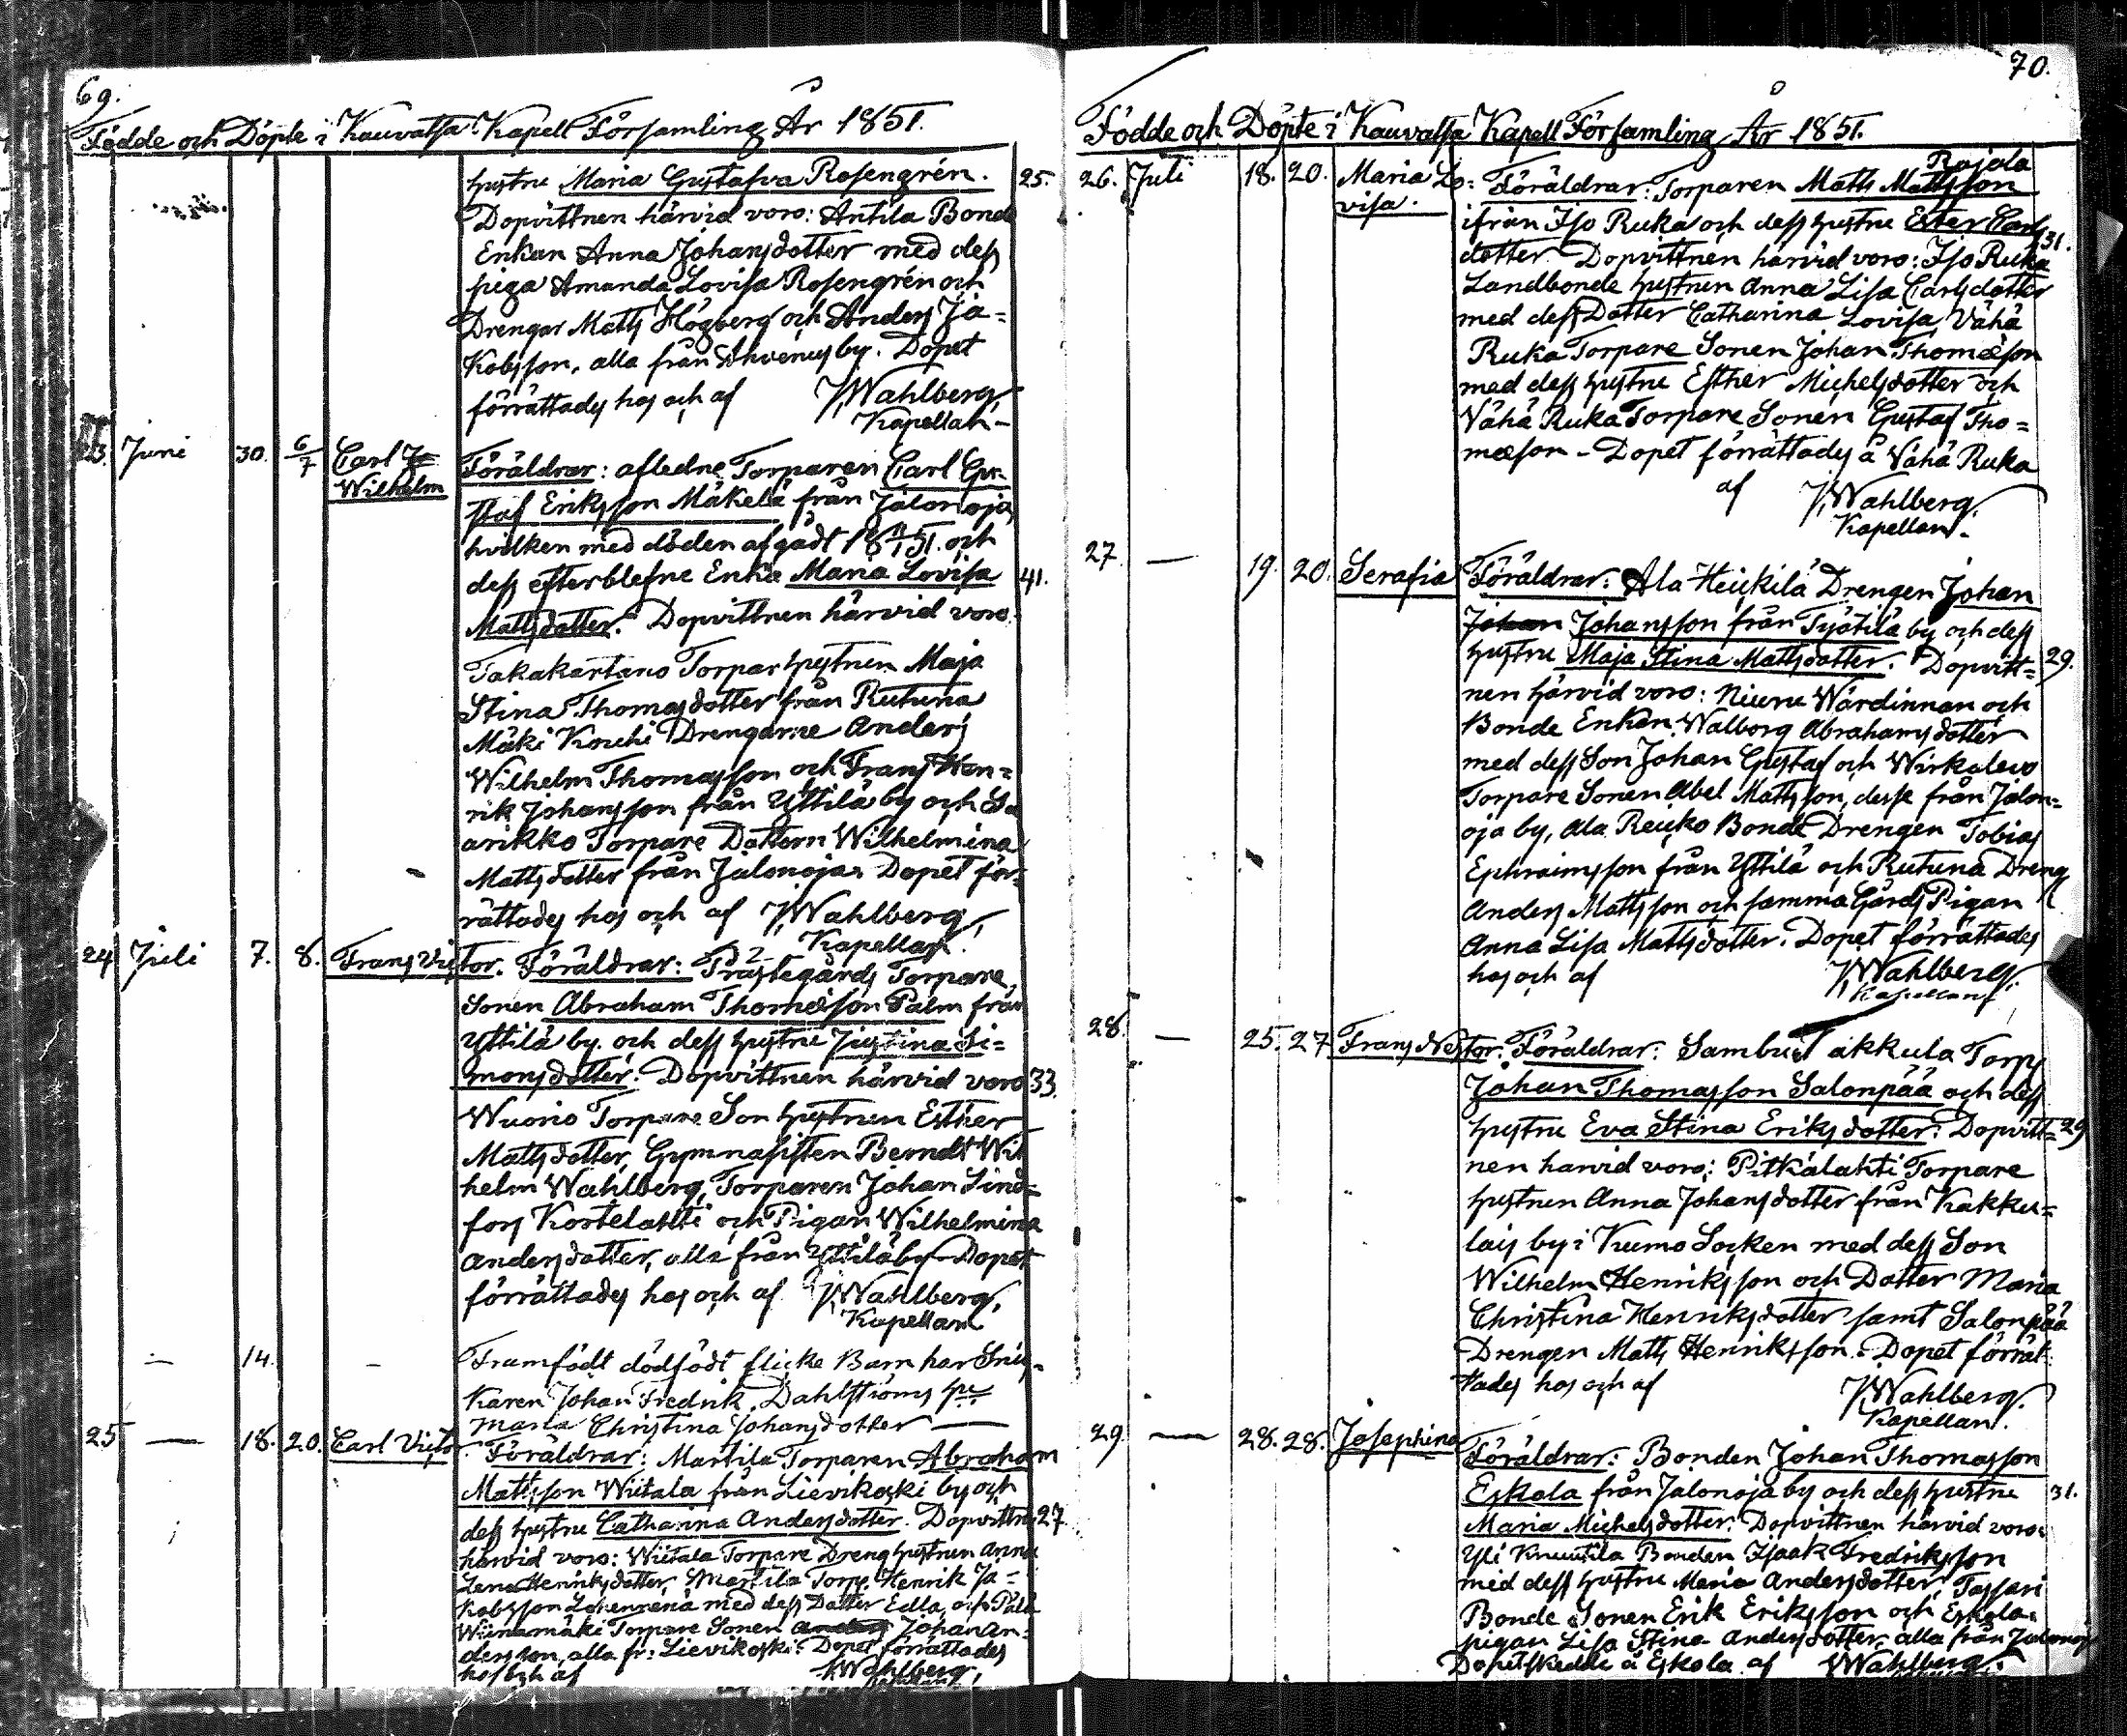 69.
Födde och Döpte i Kauvatsa Kapell Församling År 1851.
hustru Maria Gustafva Rosengrén. 25.
Dopvittnen härvid voro: Antila Bonde
Enkan Anna Johansdotter med dess
piga Amanda Lovisa Rosengrén och
Drengar Matts Högberg och Anders Ja=
kobsson, alla från Ahvenus by. Dopet
förrättades hos och af JWahlberg,
Kapellan.
23. Juni 30. 6/7 Carl Jo Föräldrar: afledne Torparen Carl Gu-
Wilhelm
staf Eriksson Mäkelä från Jalonoja,
hvilken med döden afgådt 18 51. och
dess efterblefne Enka Maria Lovisa 41.
Mattsdotter. Dopvittnen härvid voro
Takakartano Torpar hustrun Maja
Stina Thomasdotter från Rutuna
Mäki Kouhi Drengarne Anders
Wilhelm Thomasson och Frans Hen=
rik Johansson från Yttilä by och Sa
arikko Torpare Dottern Wilhelmina
Mattsdotter från Jalonoja. Dopet för=
rättades hos och af JWahlberg,
Kapellan.
24 Juli 7. 8. Frans Victor. Föräldrar: Prästegårds Torpare
Sonen Abraham Thomæsson Palm från
Yttilä by och dess hustru Justina Si=
monsdotter. Dopvittnen härvid voro 33.
Wuorio Torpare Son hustrun Esther
Mattsdotter, Gymnasisten Berndt Wil
helm Wahlberg, Torparen Johan Lind=
fors Kortelahti och Pigan Wilhelmina
Andersdotter, alla från Yttilä by. Dopet
förrättades hos och af JWahlberg,
Kapellan
— 14. — Framfödt dödfödt flicke Barn har Snic-
karen Johan Fredrik Dahlströms hu
Maria Christina Johansdotter —
25 — 18. 20. Carl Victor. Föräldrar: Martila Torparen Abraham
Mattsson Wiitala från Lievikoski by och
dess hustru Catharina Andersdotter. Dopvittn 27.
härvid voro: Wiitala Torpare Dreng hustrun Anna
Lena Henriksdotter, Martila Torp. Henrik Ja=
kobsson med dess Dotter Edla, och
Wiinamäki Torpare Sonen Anders Johan An-
dersson, alla fr: Lievikoski. Dopet förrättades
hos och af JWahlberg,
Kapellan
70.
Födde och Döpte i Kauvatsa Kapell Församling År 1851.
Rajala
26. Juli 18. 20. Maria Lo= Föräldrar: Torparen Matts Mattsson
visa. ifrån Iso Ruka och dess hustru Ester Carls 31.
dotter. Dopvittnen härvid voro: Iso Ruka
Landbonde hustrun Anna Lisa Carlsdotter
med dess Dotter Catharina Lovisa, Vähä
Ruka Torpare Sonen Johan Thomæson
med dess hustru Esther Michelsdotter och
Vähä Ruka Torpare Sonen Gustaf Tho=
mæson - Dopet förrättades å Vähä Ruka
af JWahlberg.
Kapellan.
27 — 19. 20. Serafia Föräldrar: Ala Heickilä Drengen Johan
Johan Johansson från Työtilä by och dess
hustru Maja Stina Mattsdotter. Dopvitt= 29.
nen härvid voro: Wärdinnan och
Bonde Enkan Walborg Abrahamsdotter
med dess Son Johan Gustaf och
Torpare Sonen Abel Mattsson, desse från Jalon=
oja by, Ala Reuko Bonde Drengen Tobias
Ephraimsson från Yttilä och Rutuna Dreng
Anders Mattsson och samma Gårds Pigan
Anna Lisa Mattsdotter. Dopet förrättades
hos och af JWahlberg.
Kapellan
28. — 25. 27 Frans Nestor. Föräldrar: Sambu Takkula Torp
Johan Thomasson Salonpää och dess
hustru Eva Stina Eriksdotter. Dopvitt= 29
nen härvid voro: Pitkälahti Torpare
hustrun Anna Johansdotter från Kakku=
lais by i Kumo Socken med dess Son
Wilhelm Henriksson och Dotter Maria
Christina Henriksdotter samt Salonpää
Drengen Matts Henriksson. Dopet förrät-
tades hos och af JWahlberg.
Kapellan.
29. — 28. 28. Josephina Föräldrar: Bonden Johan Thomasson
Eskola från Jalonoja by och dess hustru 31.
Maria Michelsdotter. Dopvittnen härvid voro:
Yli Knuutila Bonden Isaak Fredriksson
med dess hustru Maria Andersdotter, Tassari
Bonde Sonen Erik Eriksson och Eskola
pigan Lisa Stina Andersdotter, alla från Jalonoj
Dopet skedde å Eskola af JWahlberg.